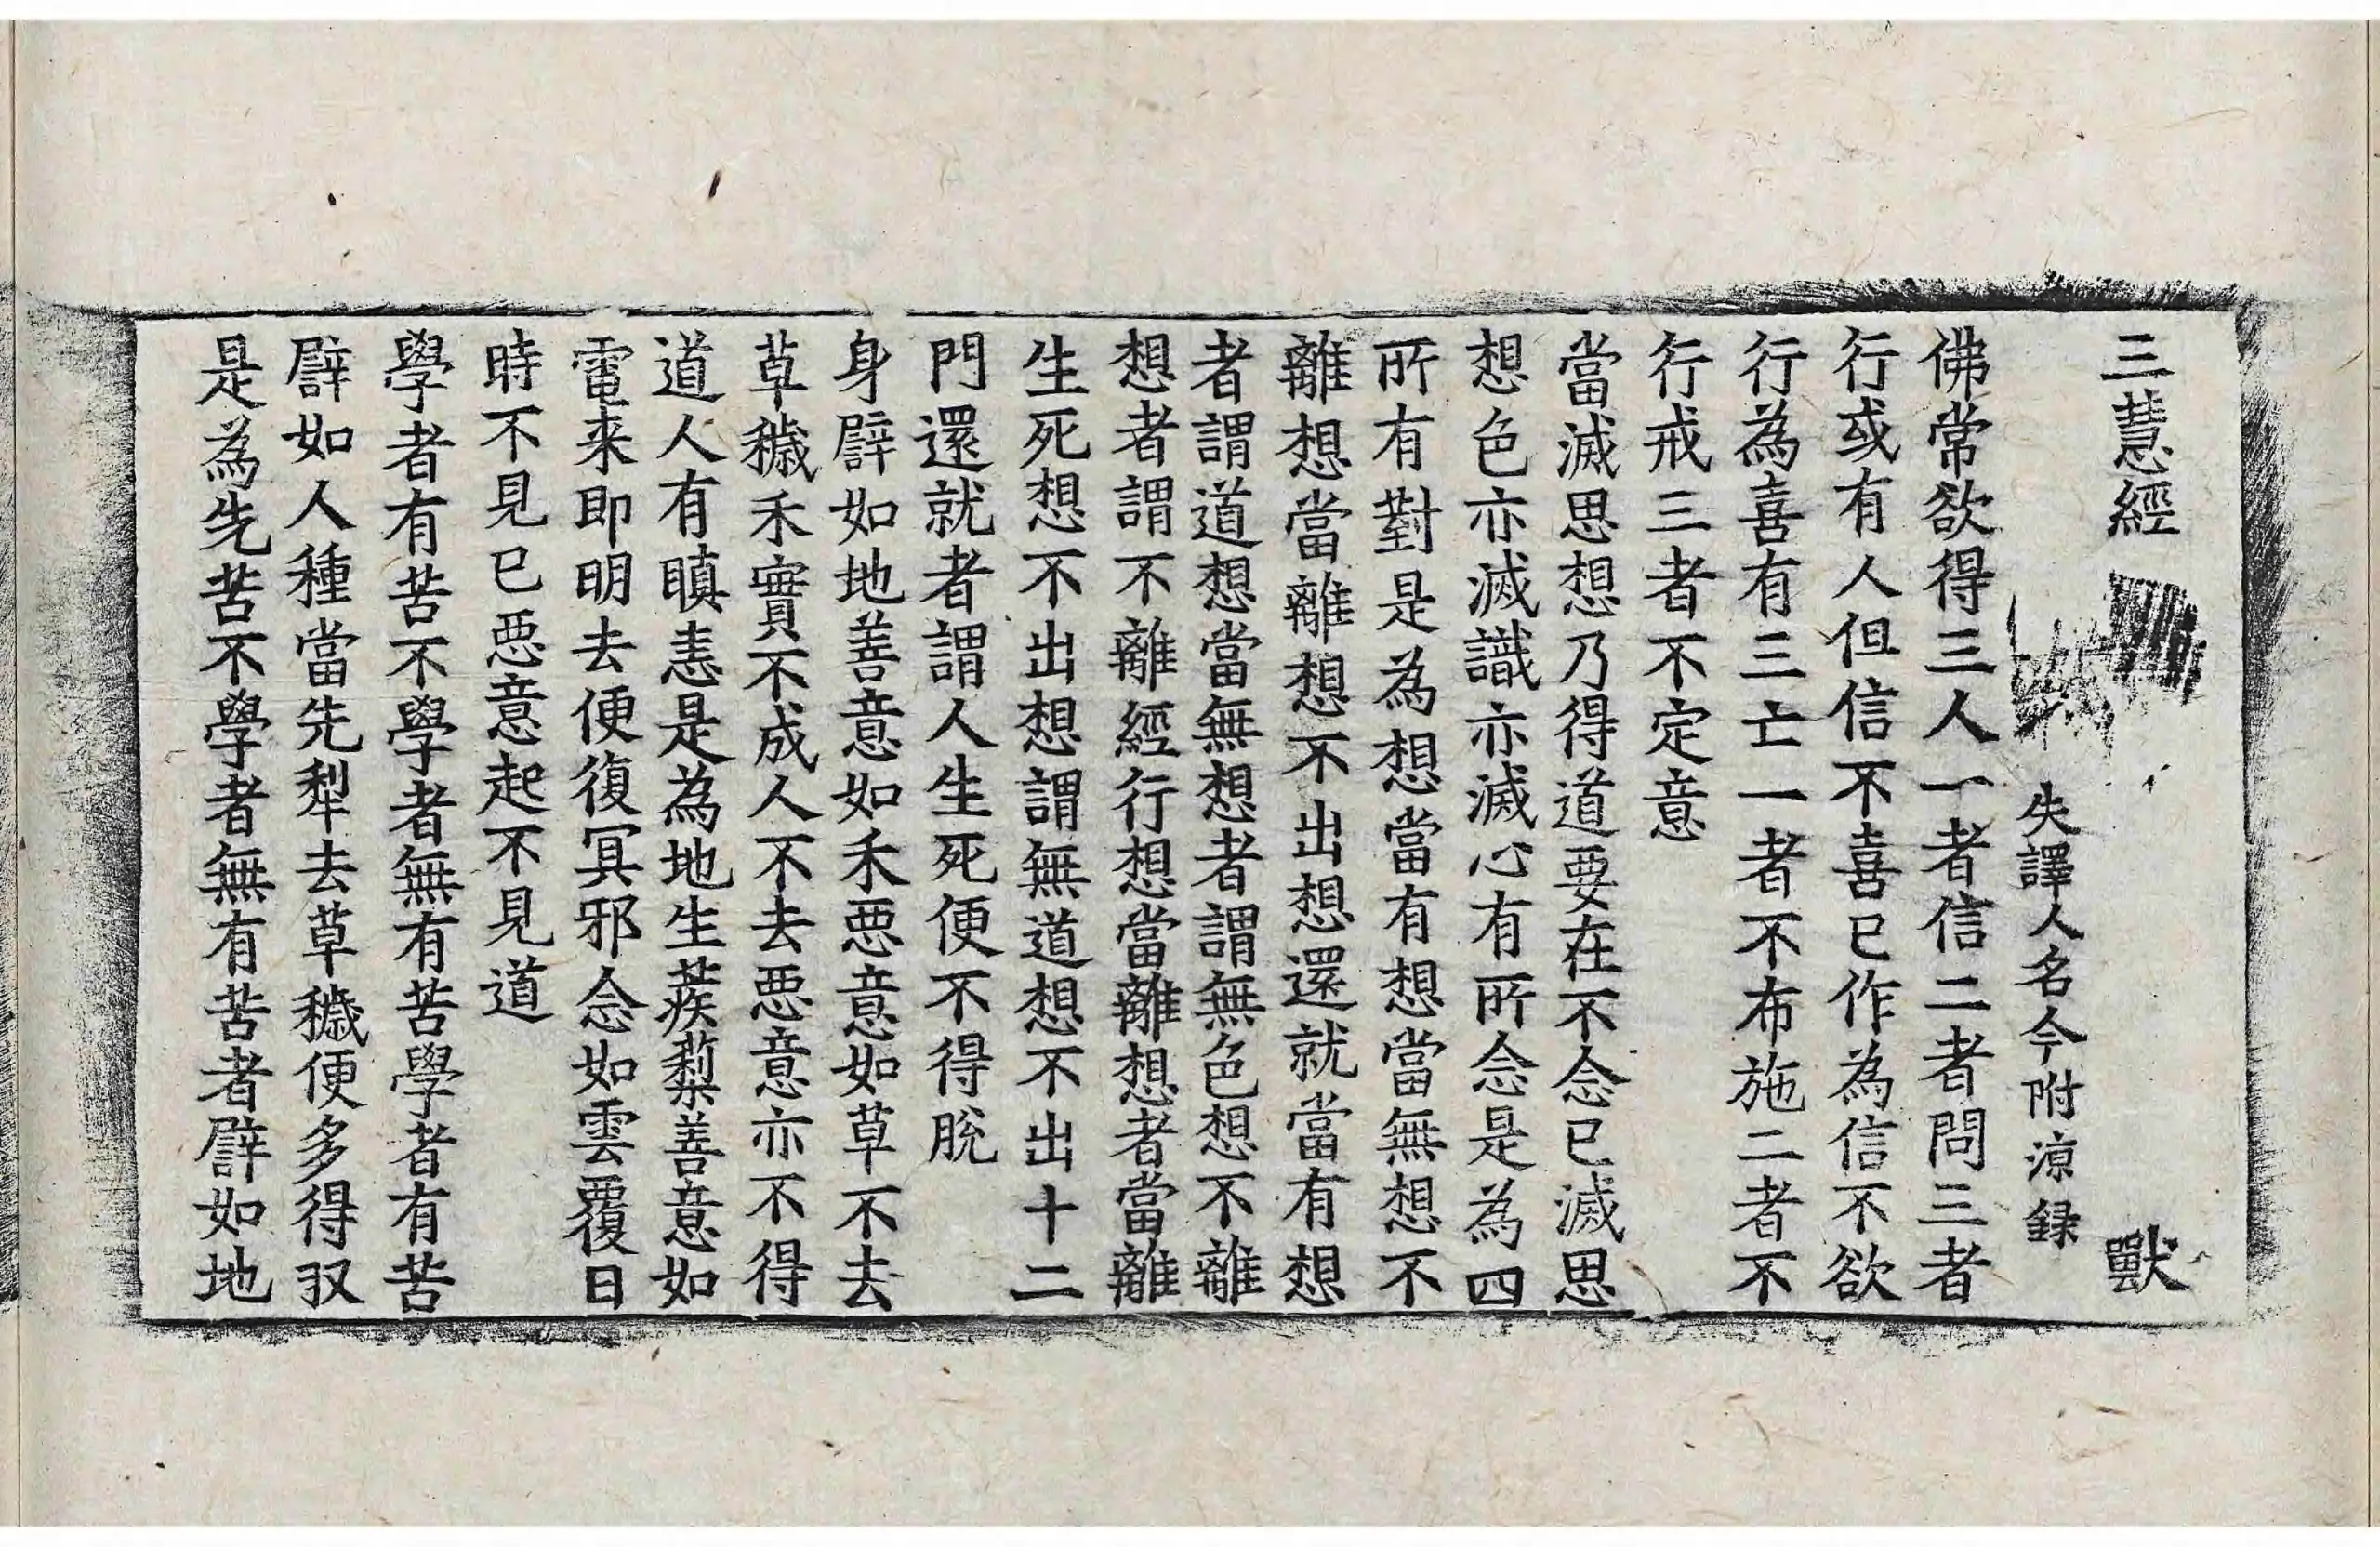 三慧經　獸
失譯人名今附涼録
佛常欲得三人一者信二者問三者
行或有人但信不喜已作為信不欲
行為喜有三亡一者不布施二者不
行戒三者不定意
當滅思想乃得道要在不念已滅思
想色亦滅識亦滅心有所念是為四
所有對是為想當有想當無想不
離想當離想不出想還就當有想
者謂道想當無想者謂無色想不離
想者謂不離經行想當離想者當離
生死想不出想謂無道想不出十二
門還就者謂人生死便不得脫
身譬如地善意如禾惡意如草不去
草穢禾實不成人不去惡意亦不得
道人有瞋恚是為地生蒺蔾善意如
電来即明去便復冥邪念如雲覆日
時不見已惡意起不見道
學者有苦不學者無有苦學者有苦
譬如人種當先犁去草穢便多得収
是為先苦不學者無有苦者譬如地